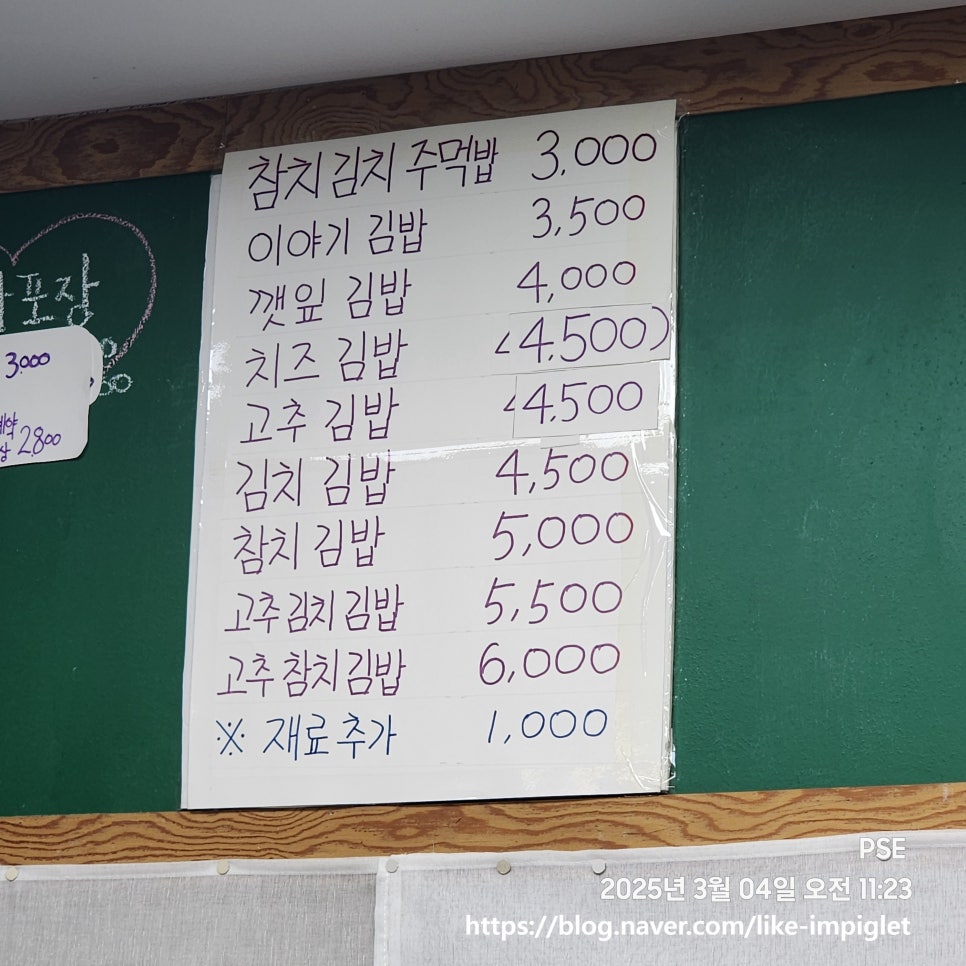 참치김치 주먹밥 3,000
이야기 김밥 3,500
깻잎 김밥 4,000
치즈 김밥 4,500
고추 김밥 4,500
김치 김밥 4,500
참치 김밥 5,000
고추김치김밥 5,500
고추참치김밥 6,000
※ 재료추가 1,000
포장
3000
2800
PSE
2025년 3월 04일 오전 11:23
https://blog.naver.com/like-impiglet